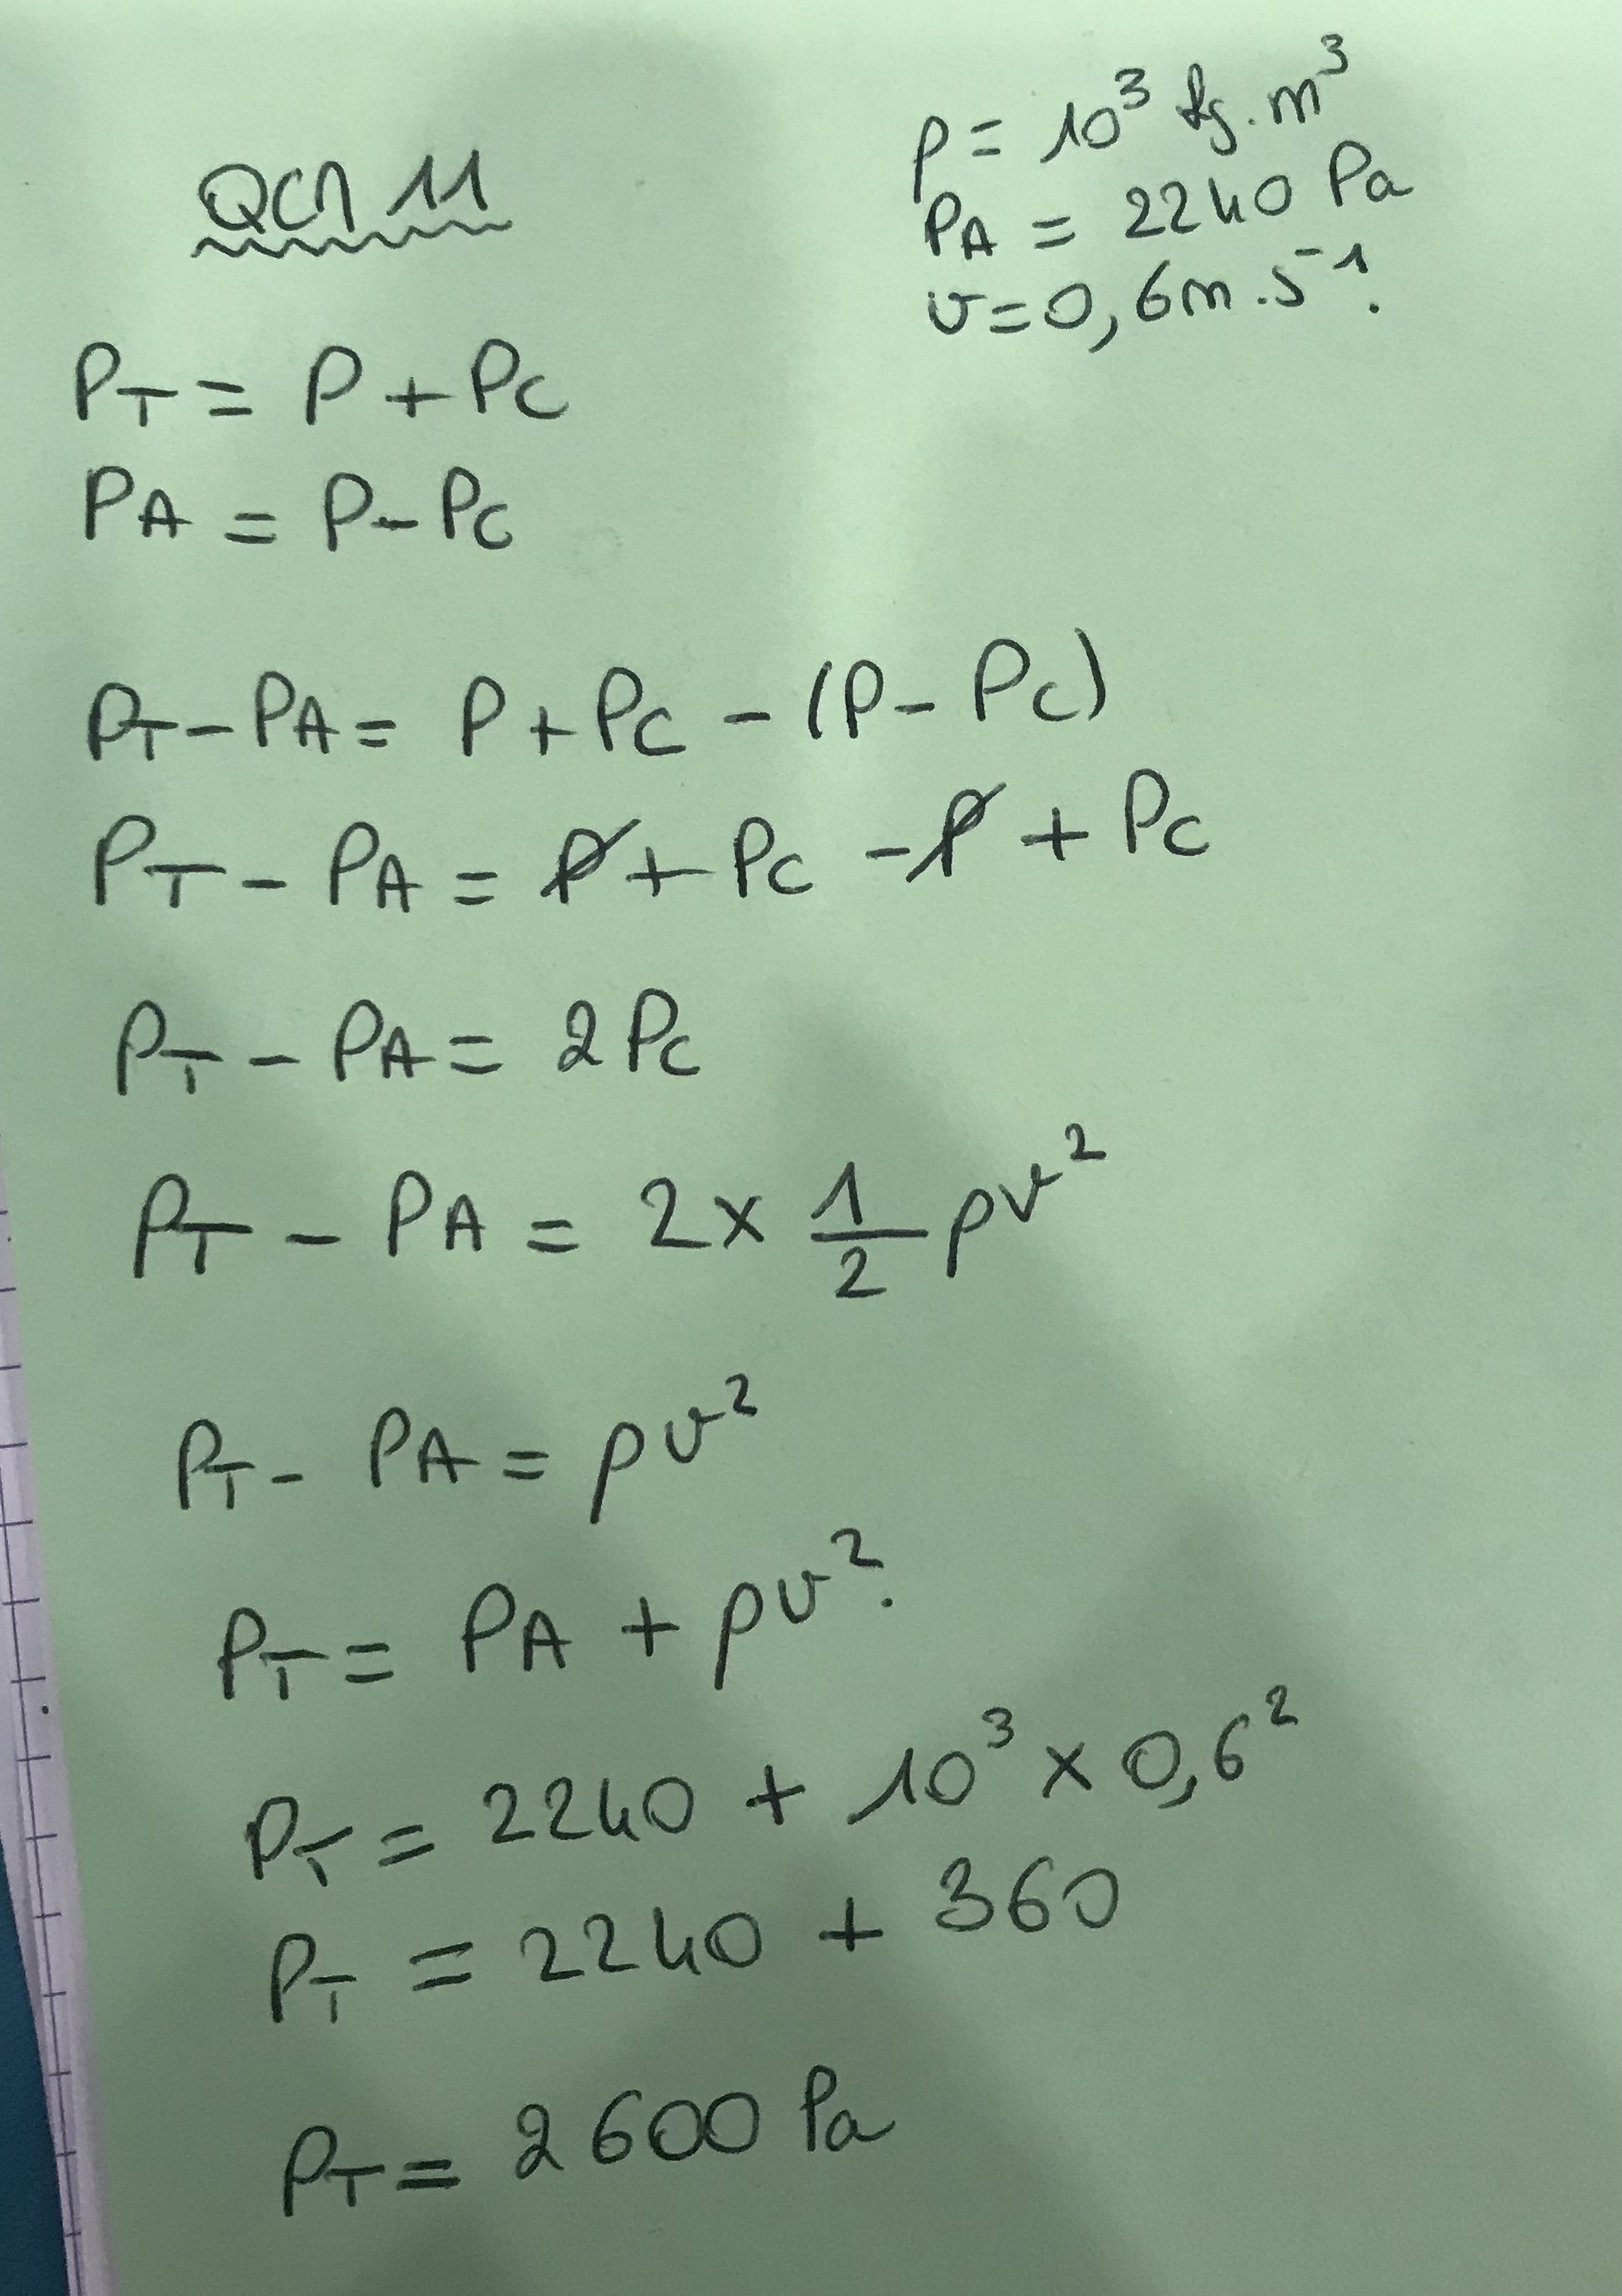 QCM 11
ρ = 10³ kg.m³
PA = 2240 Pa
v = 0,6m.s⁻¹.
PT = P + PC
PA = P - PC
PT - PA = P + PC - (P - PC)
PT - PA = P + PC - P + PC
PT - PA = 2 PC
PT - PA = 2 × 1/2 ρv²
PT - PA = ρv²
PT = PA + ρv².
PT = 2240 + 10³ × 0,6²
PT = 2240 + 360
PT = 2600 Pa